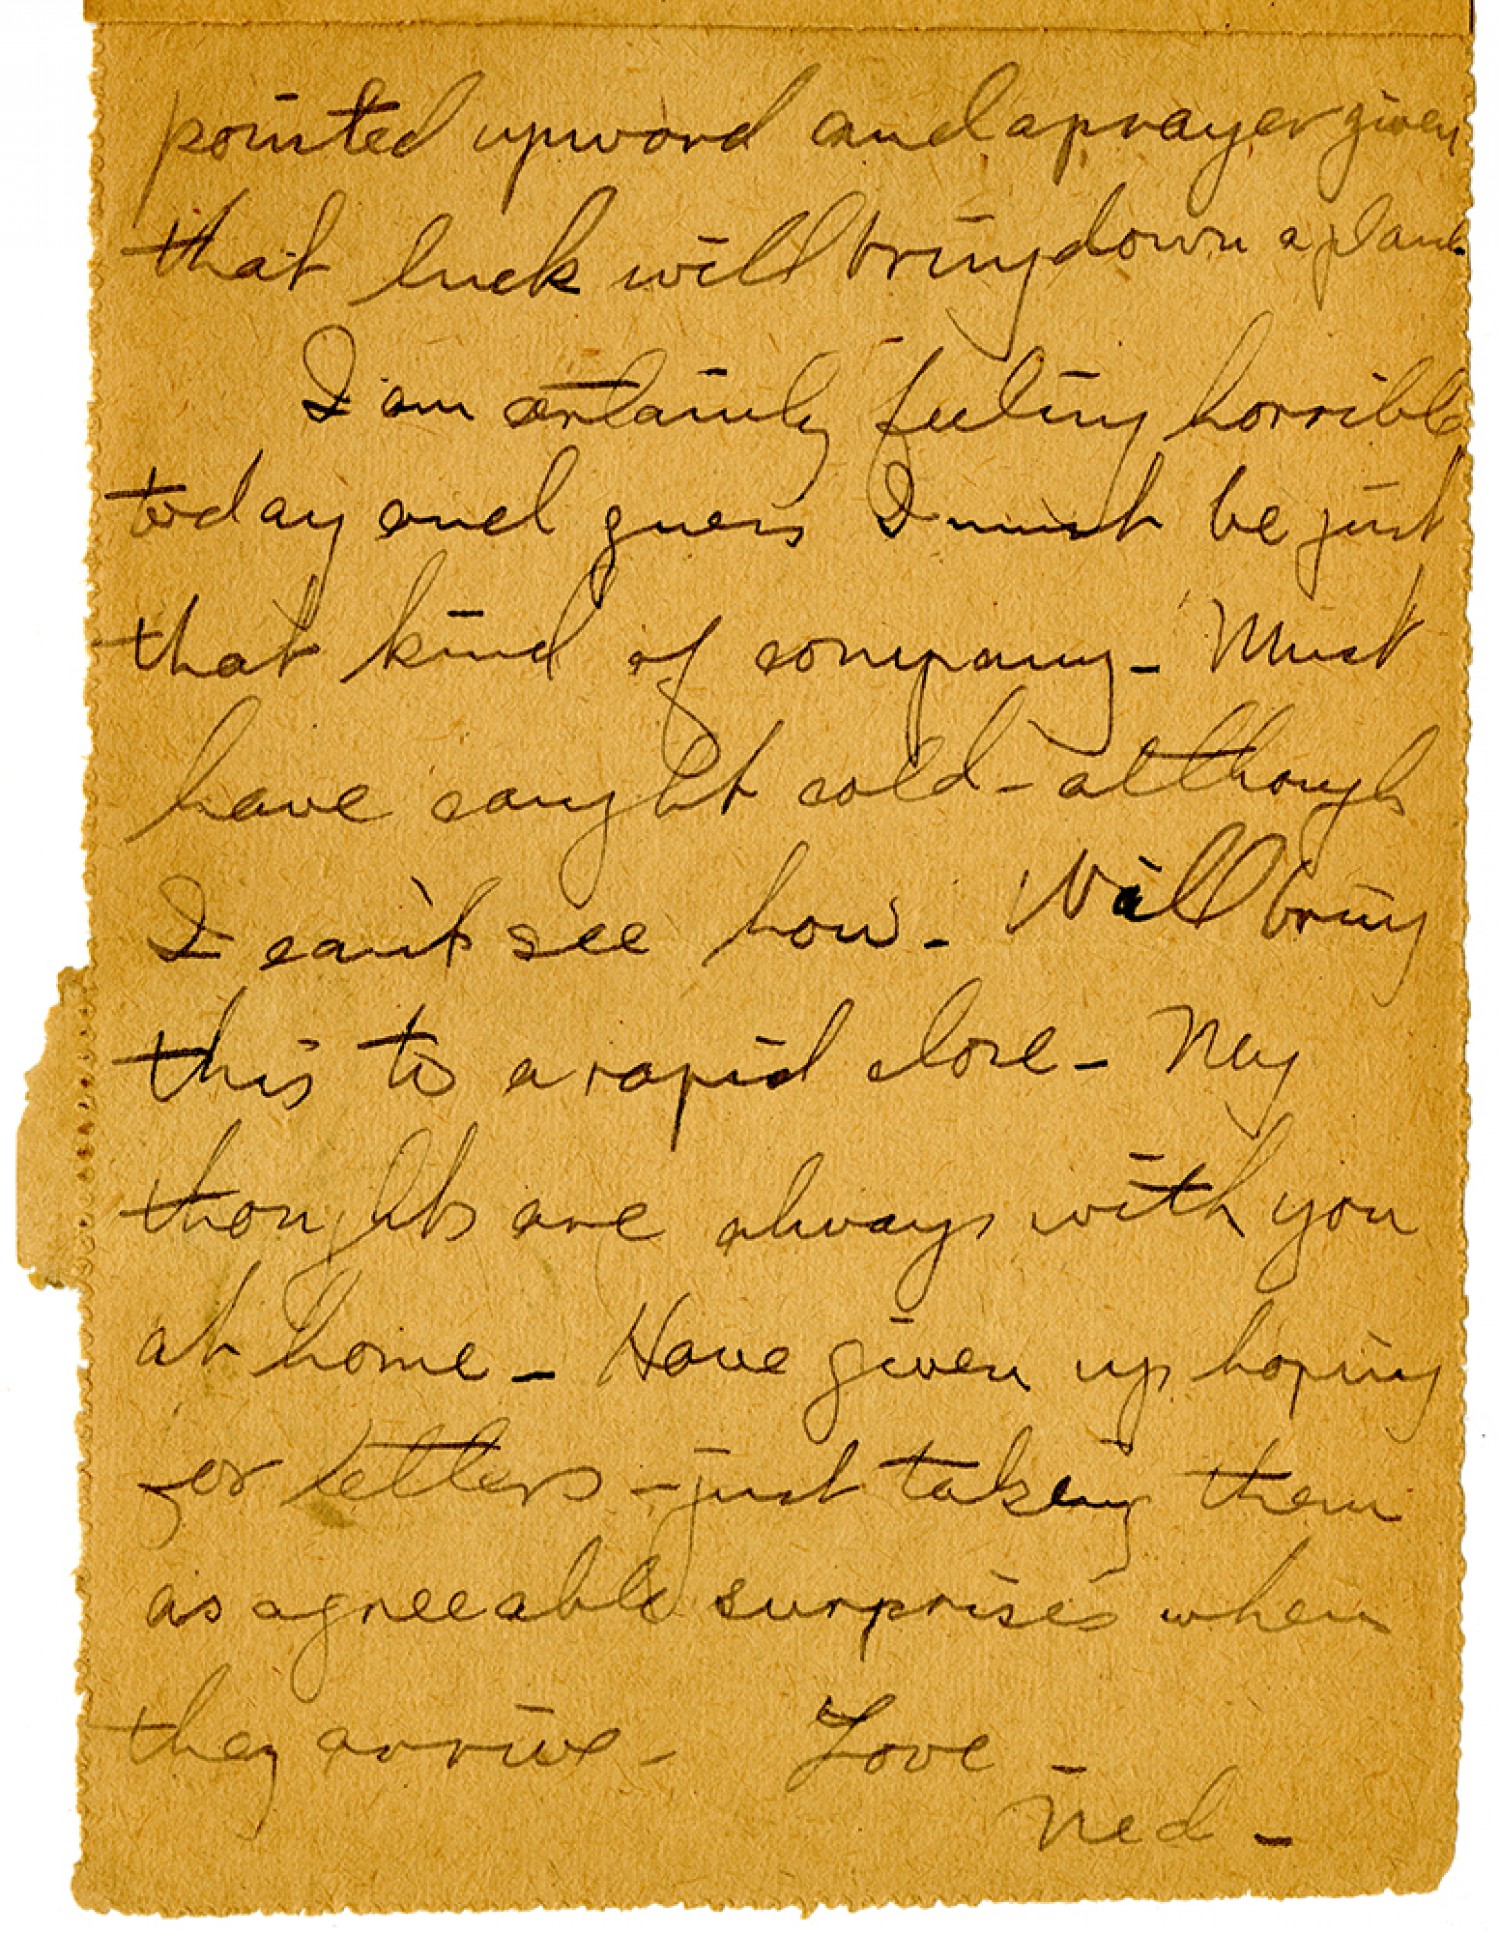 pointed upward and a prayer given
that luck will bring down a plane.
I am certainly feeling horrible
today and guess I must be just
that kind of company - Must
have caught cold - although
I can't see how. - Will bring
this to a rapid close - My
thoughts are always with you
at home - Have given up hoping
for letters - just taking them
as agreeable surprises when
they arrive - Love -
Ned -